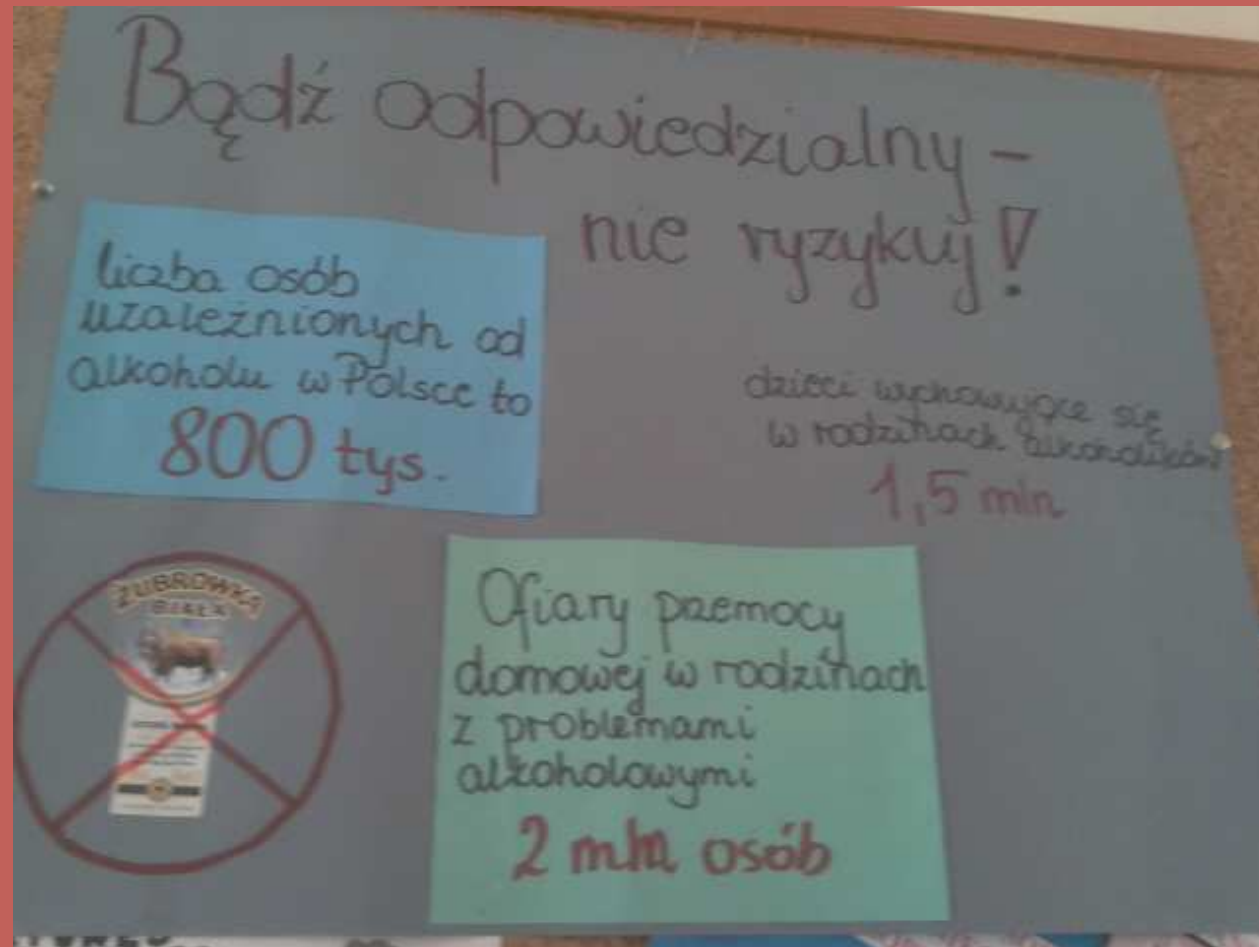 Bądź odpowiedzialny -
nie ryzykuj!
liczba osób
uzależnionych od
alkoholu w Polsce to
800 tys.
dzieci wychowujące się
w rodzinach alkoholików
1,5 mln
ŻUBRÓWKA
BIAŁA
Ofiary przemocy
domowej w rodzinach
z problemami
alkoholowymi
2 mln osób